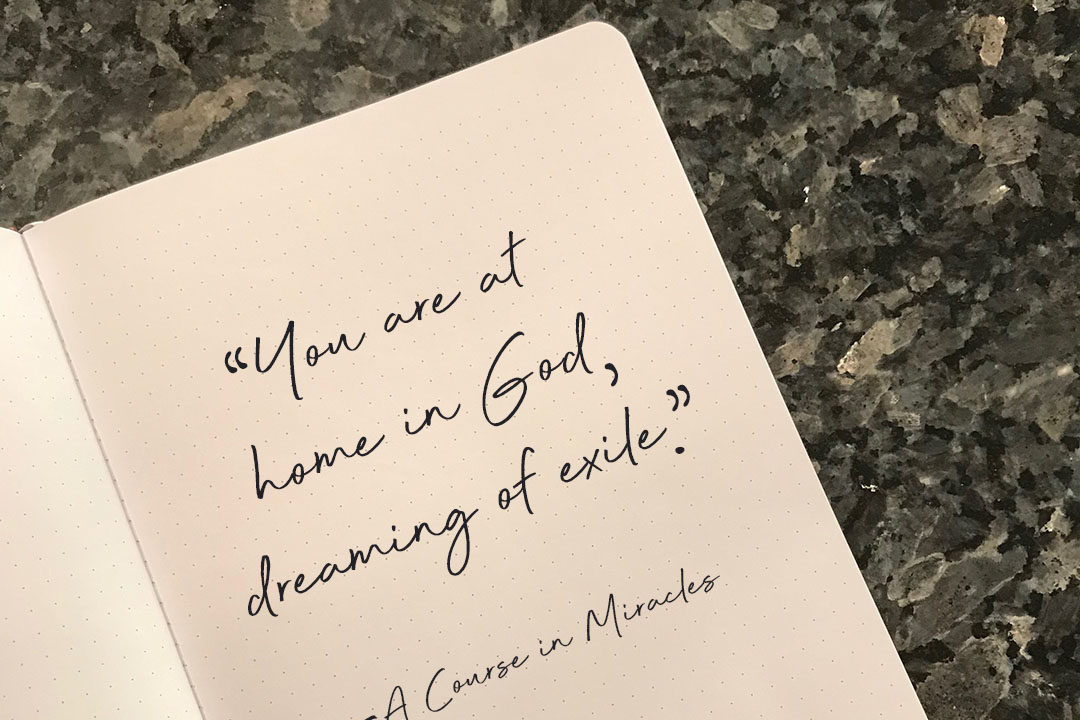 “You are at
home in God,
dreaming of exile.”
-A Course in Miracles